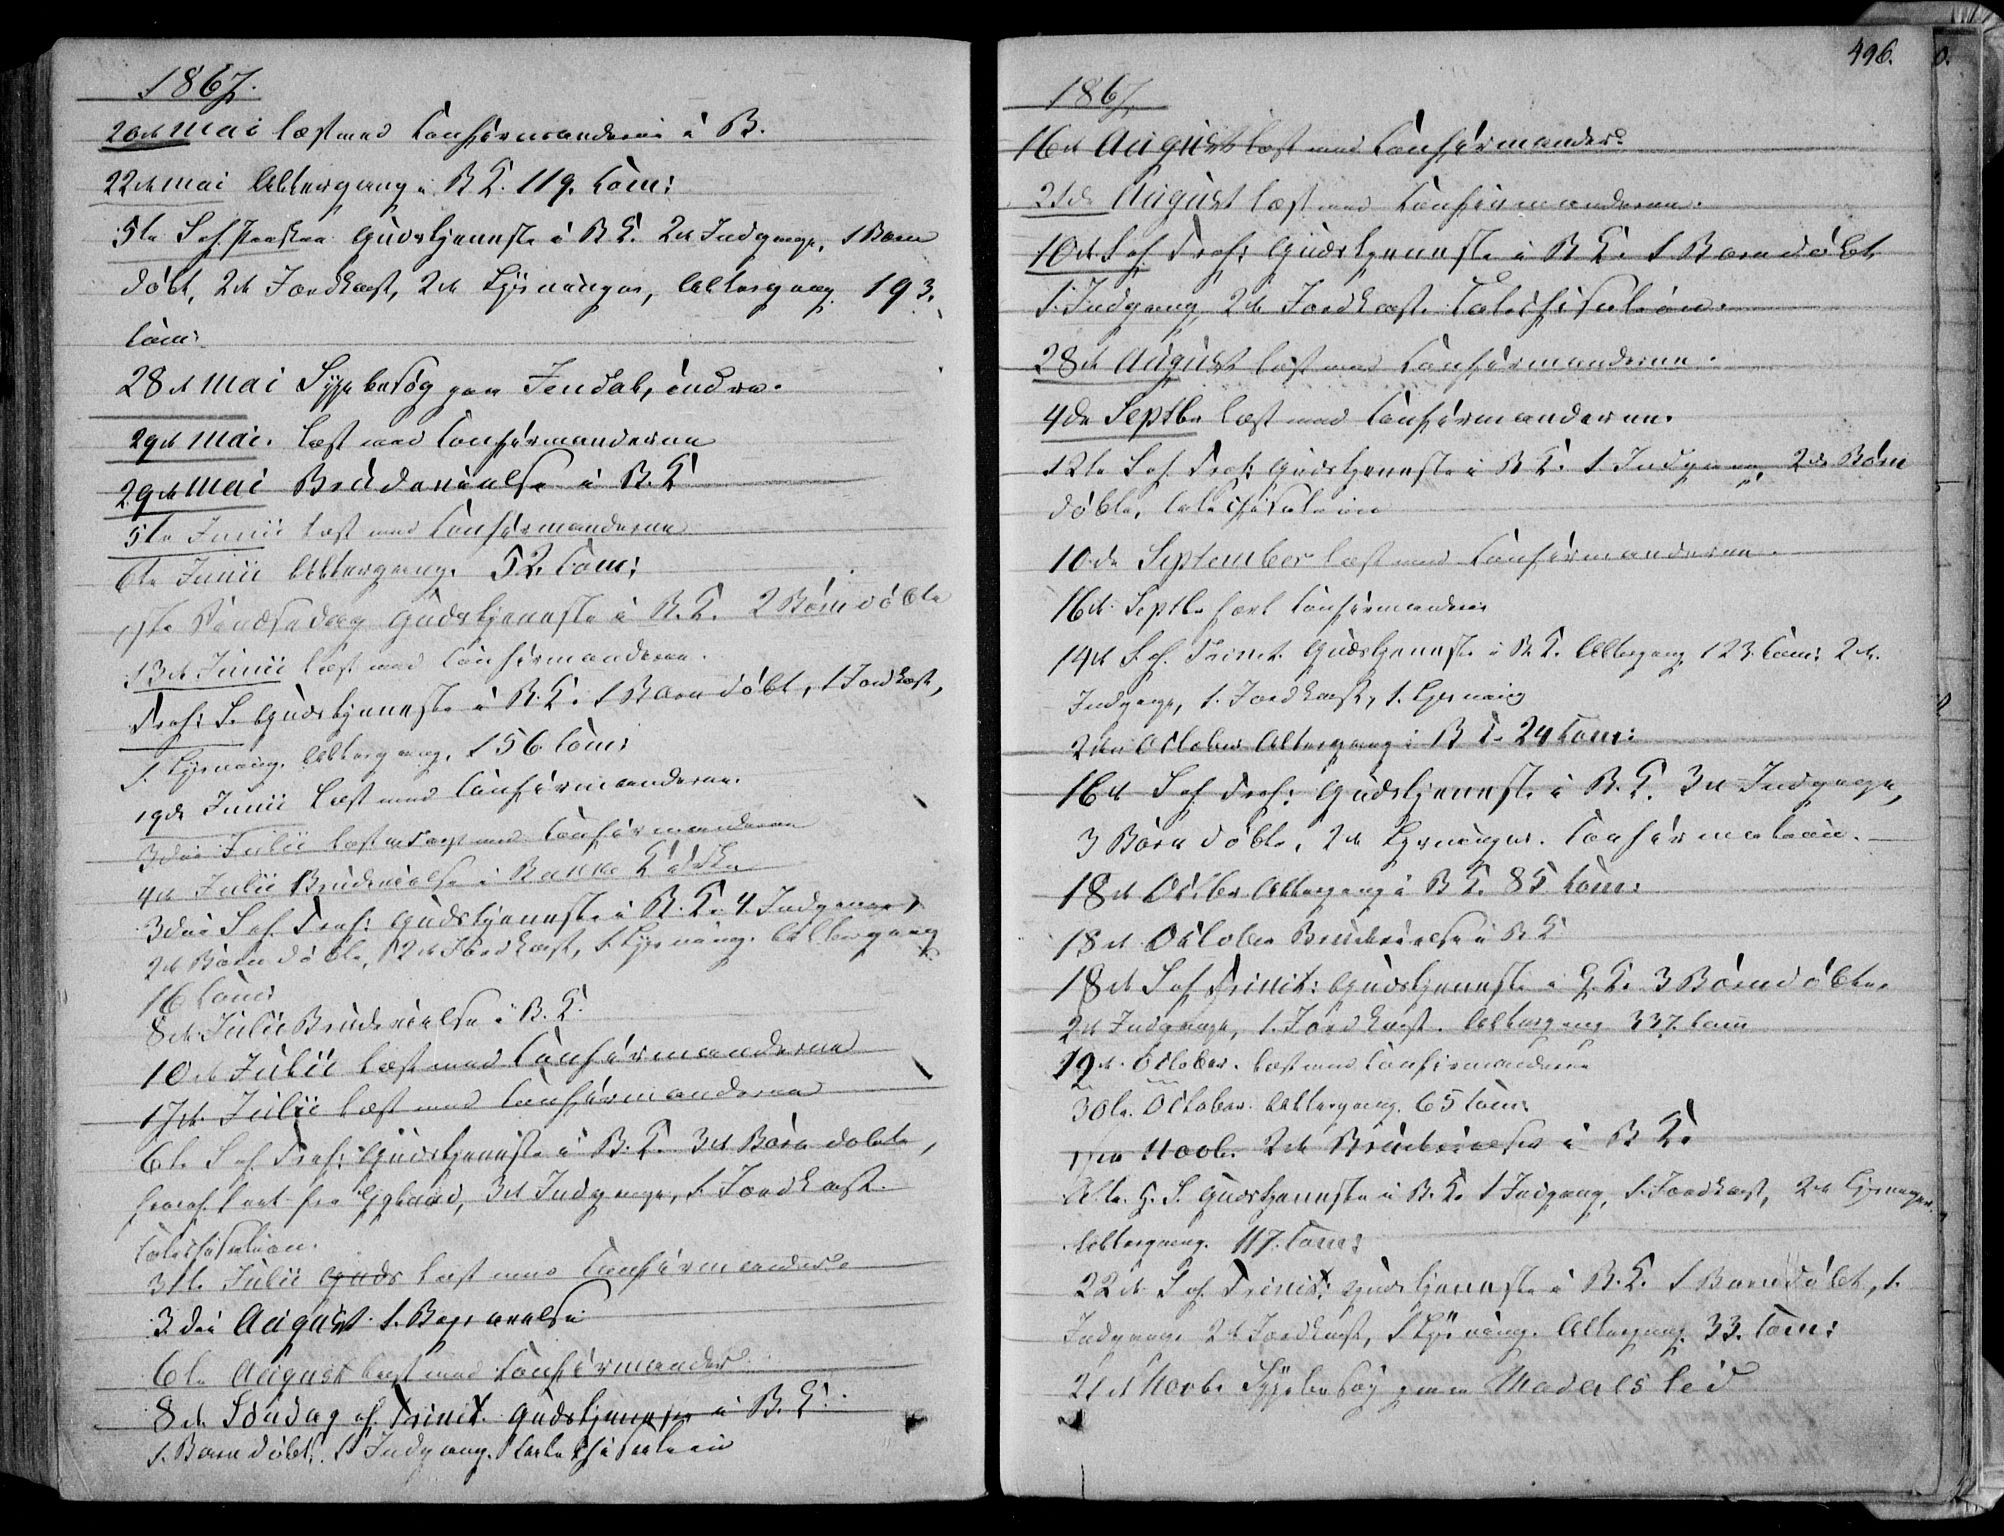 1867.
20de Mai læst med Confirmanderne i B.
22de Mai Altergang i B K. 119. Com:
5te S. ef. Paaske Gudstjeneste i B K. 2de Indgange, 1 Barn
döbt, 2de Jordkast, 2de Lysninger, Altergang 193.
Com:
28de Mai Sygebesög paa indre.
29de Mai. læst med Confirmanderne
29de Mai Brudevielse i B. K
5te Junii læst med Confirmanderne
6te Junii Altergang. 52. Com:
1ste Pindsedag Gudstjeneste i B. K. 2 Börn döbte
13de Junii læst med Confirmanderne.
Tref: S. Gudstjeneste i B. K. 1 Barn döbt, 1 Jordkast,
1. Lysning. Altergang. 156 Com:
19de Junii læst med Confirmanderne.
3die Julii læst med Confirmanderne
4de Julii Brudevielse i Kirke
3die S. ef. Tref: Gudstjeneste i B. K. 4. Indgange,
2de Börn döbte, 2de Jordkast, 1. Lysning. Altergang
16 Com:
8de Julii Brudevielse i B. K.
10de Julii læst med Confirmanderne
17de Julii læst med Confirmanderne
6te S. ef. Tref: Gudstjeneste i B. K. 3de Börn döbte,
fra 3de Indgange, 1. Jordkast.
Catechisation.
31te Julii Guds læst med Confirmanderne
3die August 1. Begravelse
6te August læst med Confirmander
8de Söndag ef. Trinit. Gudstjeneste i B. K.
1. Barn döbt. 1. Indgang. Catechisation
496.
1867
16de August læst med Confirmander
21de August læst med Confirmanderne.
10de S. ef. Tref: Gudstjeneste i B K. 1 Barn döbt,
1. Indgang, 2de Jordkast. Catechisation.
28de August læst med Confirmanderne.
4de Septbr læst med Confirmanderne.
12te S. ef. Tref: Gudstjeneste i B K. 1 Indgang, 2de Börn
döbte, Catechisation
10de September læst med Confirmanderne.
16de Septbr Confirmander
14de S. ef. Trinit. Gudstjeneste i B K. Altergang 123 Com: 2de
Indgange, 1. Jordkast, 1. Lysning
2den October Altergang i B K. 24 Com:
16de S. ef. Tref: Gudstjeneste i B. K. 3de Indgange,
3 Börn döbte, 2de Lysninger. Confirmation.
18de Octbr Altergang i B K. 85 Com:
18de October Brudevielse i B K
18de S. ef. Trinit: Gudstjeneste i G K. 3 Börn döbte,
2de Indgange, 1. Jordkast. Altergang 337. Com
19de October. læst med Confirmanderne
30te October. Altergang. 65 Com:
1ste Novb. 2de Brudevielser i B K.
Alle H. S. Gudstjeneste i B. K. 1 Indgang, 1. Jordkast, 2de Lysninger.
Altergang. 117. Com:
22de S. ef. Trinit: Gudstjeneste i B. K. 1 Barn döbt, 1.
Indgang 2de Jordkast, 1 Lysning. Altergang. 33. Com:
21de Novbr Sygebesög paa